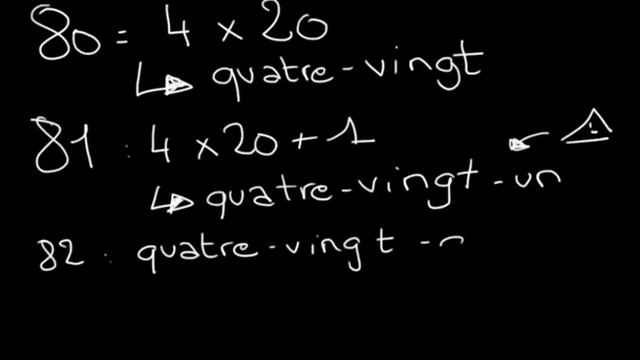 80 = 4 x 20
↳ quatre-vingt
81 : 4 x 20 + 1
↳ quatre-vingt-un
82 : quatre-vingt -